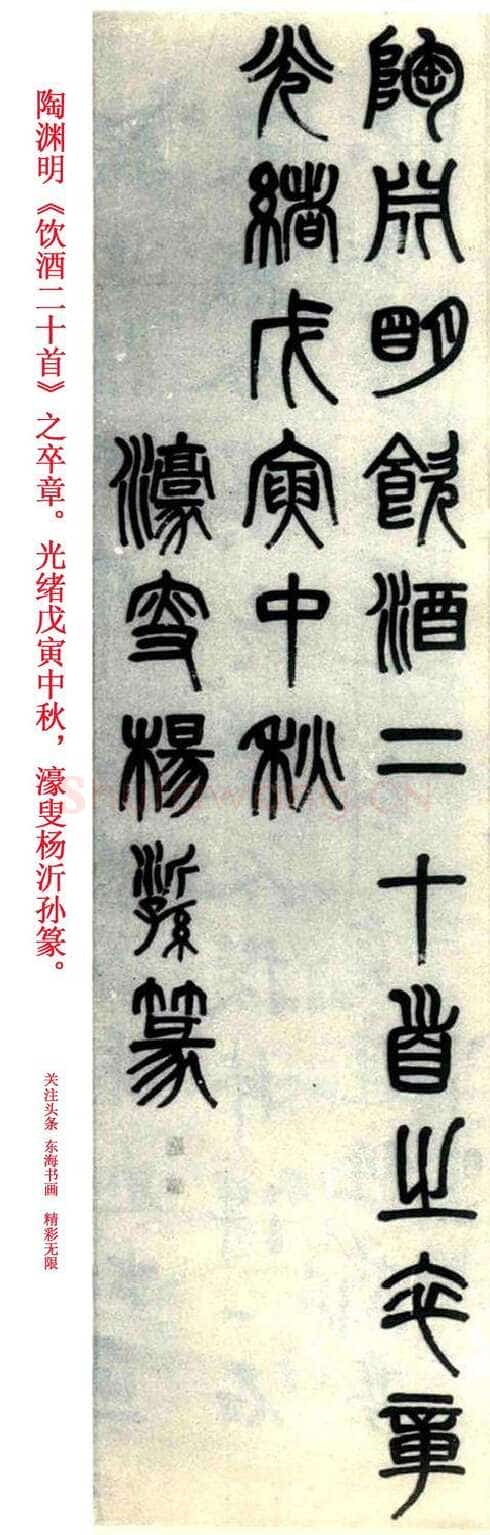 陶渊明《饮酒二十首》之卒章。光绪戊寅中秋，濠叟杨沂孙篆。
关注头条 东海书画 精彩无限
陶淵明飲酒二十首之卒章
光緒戊寅中秋
濠叟楊沂孫篆